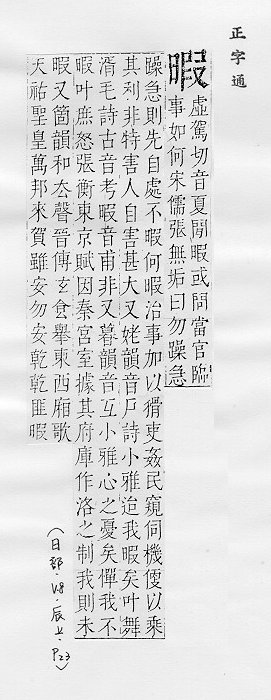 正字通
暇
虛駕切音夏閒暇或問當官臨
事如何宋儒張無垢曰勿躁急
躁急則先自處不暇何暇治事加以猾吏姦民窺伺機便以乘
其利非特害人自害甚大又姥韻音戸詩小雅迨我暇矣叶舞
湑毛詩古音考暇音甫非又暮韻音互小雅心之憂矣憚我不
暇叶庶怒張衡東京賦因秦宮室據其府庫作洛之制我則未
暇又箇韻和厺聲晉傅玄食舉東西厢歌
天祐聖皇萬邦來賀雖安勿安乾乾匪暇
(日部·V8·辰上·P23)